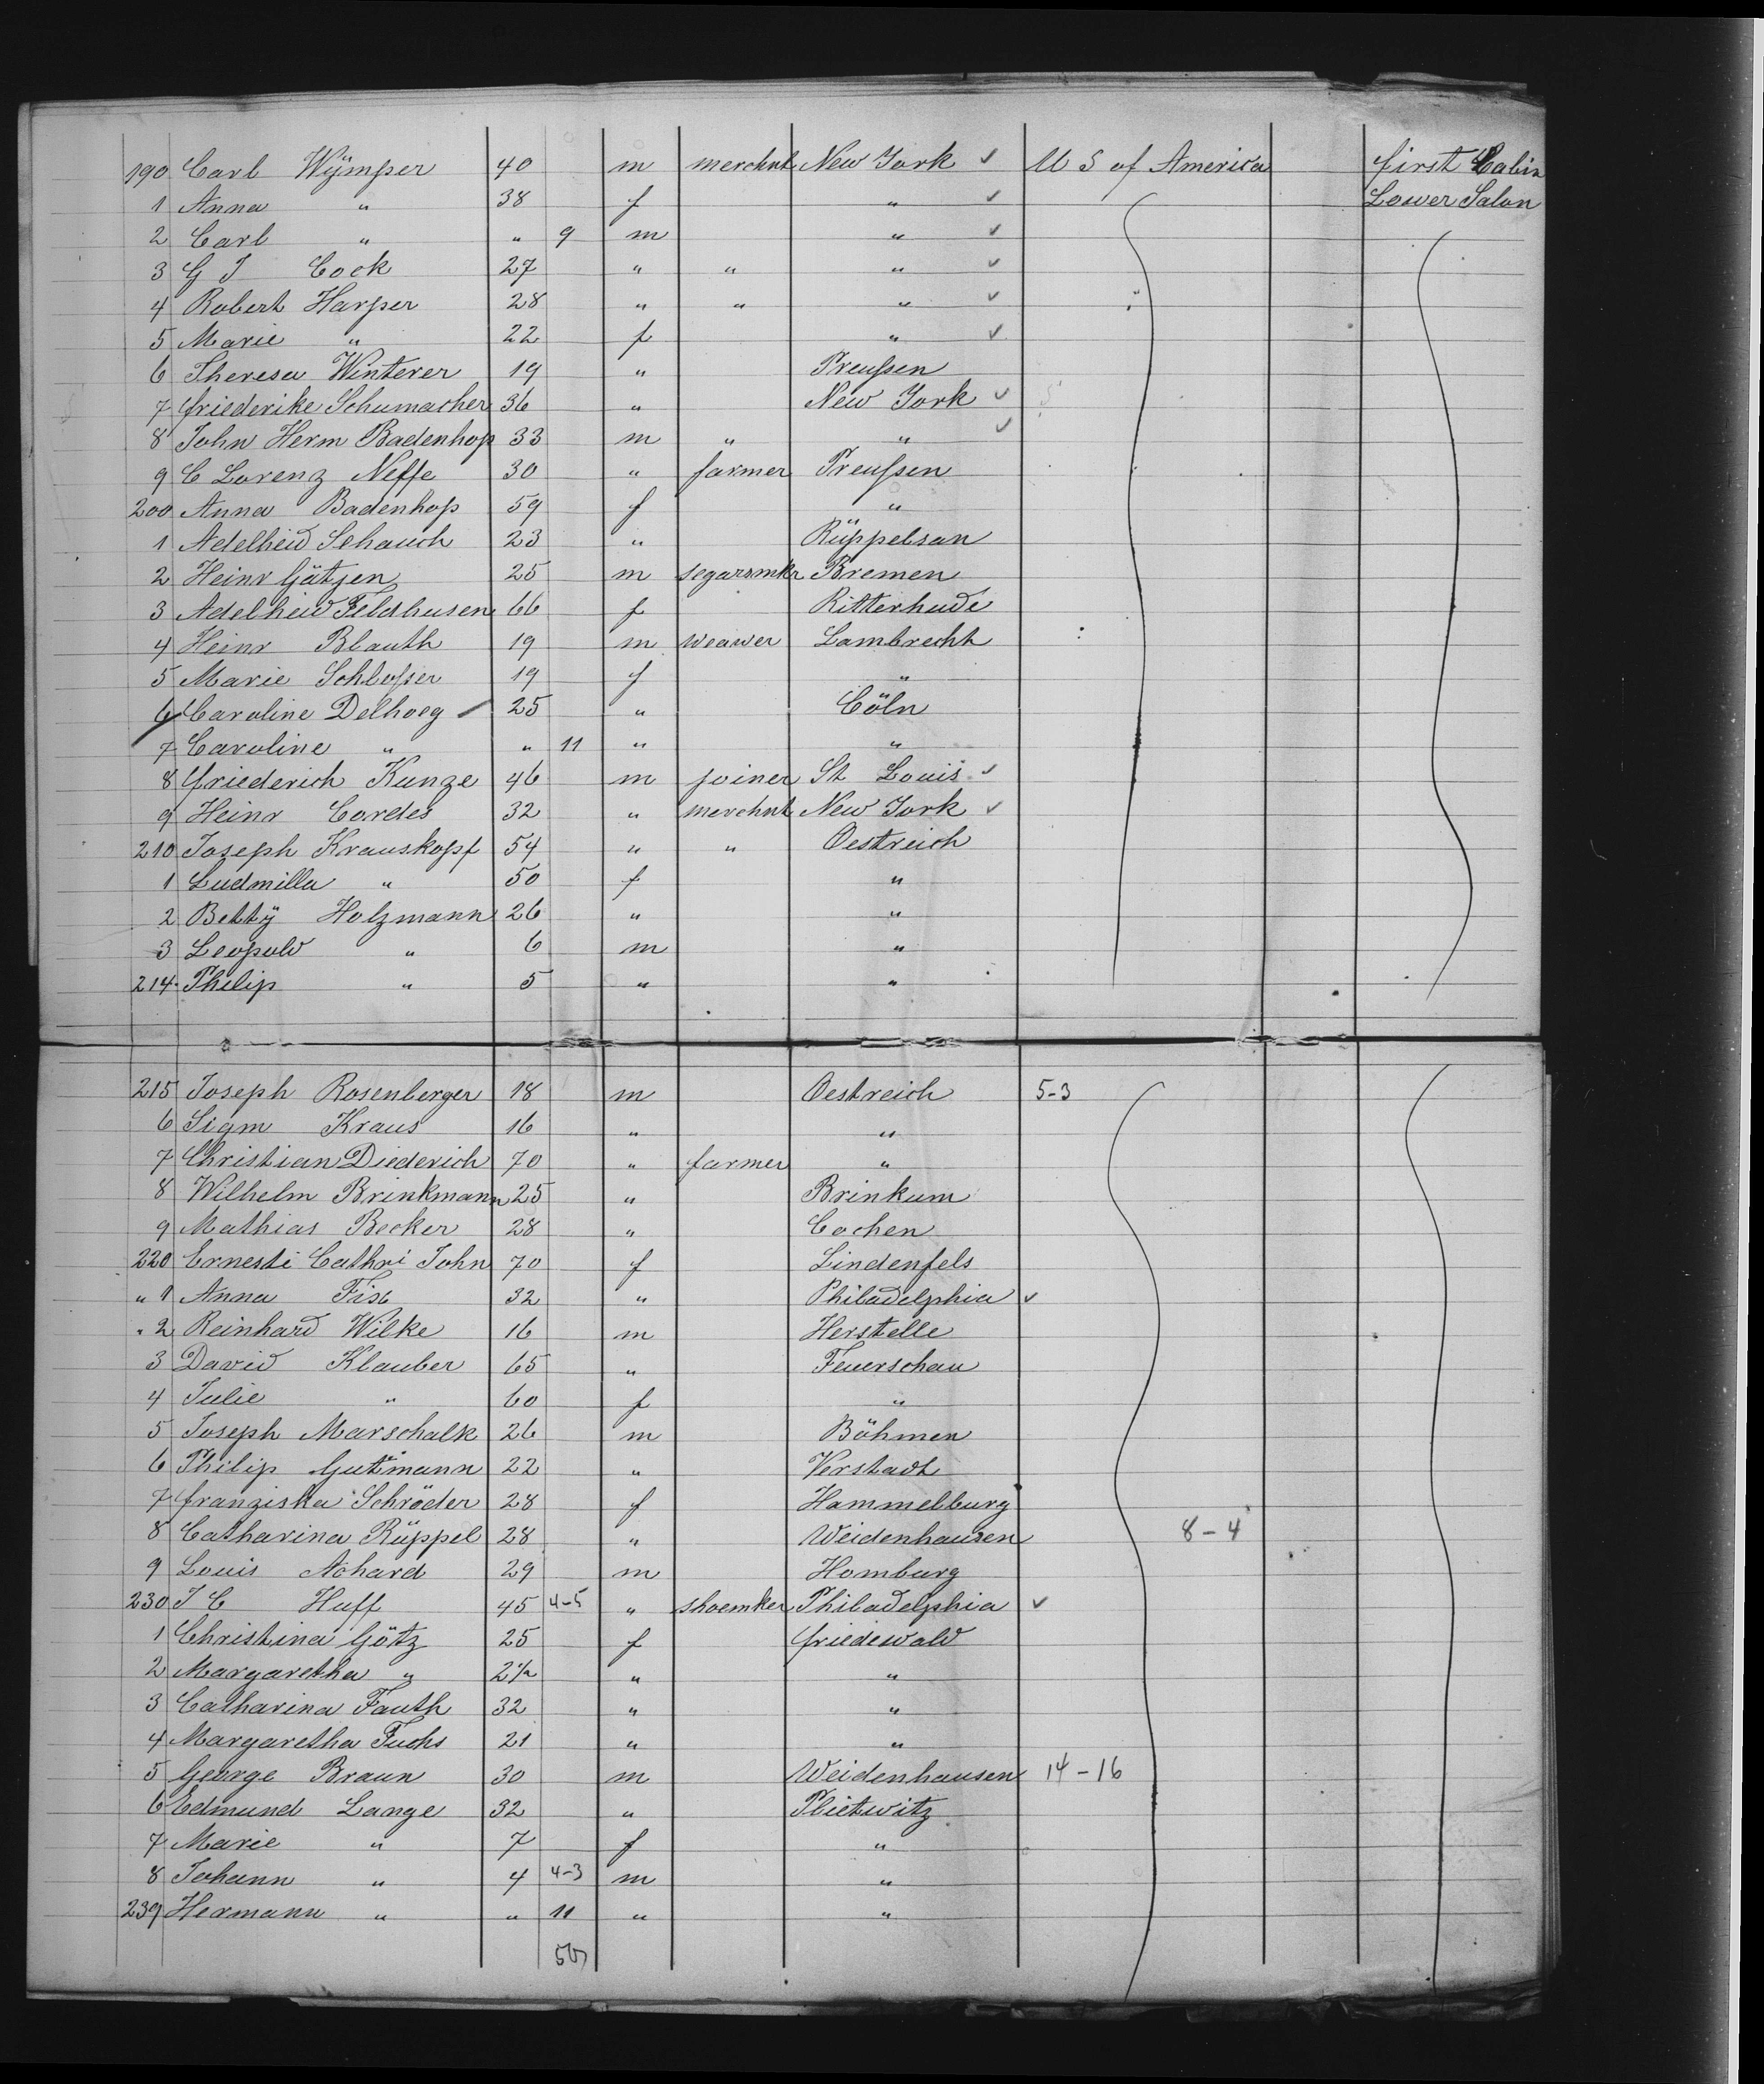 190 Carl Wÿmper 40 m merchnt New York ✓ U S of America first Cabin
1 Anna " 38 f " ✓ Lower Salon
2 Carl " " 9 m " ✓
3 G J Cook 27 " " " ✓
4 Robert Harper 28 " " " ✓ "
5 Marie " 22 f " ✓
6 Theresa Winterer 19 " Preußen
7 friederike Schumacher 36 " New York ✓
8 John Herm Badenhop 33 m " " ✓
9 C Lorenz Neffe 30 " farmer Preußen
200 Anna Badenhop 59 f "
1 Adelheid Schauch 23 " Rüppelsan
2 Heinr Gätjen 25 m segarsmkr Bremen
3 Adelheid Feldhusen 66 f Ritterhude
4 Heinr Blauth 19 m weawer Lambrecht
5 Marie Schloßer 19 f "
6 Caroline Delhoeg 25 " Cöln
7 Caroline " " 11 " "
8 friederich Kunze 46 m joiner St Louis ✓
9 Heinr Cordes 32 " merchnt New York ✓
210 Joseph Krauskopf 54 " " Oestreich
1 Ludmilla " 50 f "
2 Bettÿ Holzmann 26 " "
3 Leopold " 6 m "
214 Philip " 5 " "
215 Joseph Rosenberger 18 m Oestreich 5-3
6 Sigm Kraus 16 " "
7 Christian Diederich 70 " farmer "
8 Wilhelm Brinkmann 25 " Brinkum
9 Mathias Becker 28 " Cochen
220 Ernesti Cathri John 70 f Lindenfels
" 1 Anna 32 " Philadelphia ✓
" 2 Reinhard Wilke 16 m Herstelle
3 David Klauber 65 " Feuerschau
4 Julie " 60 f "
5 Joseph Marschalk 26 m Böhmen
6 Philip Gutmann 22 " Verstadt
7 franziska Schröder 28 f Hammelburg
8 Catharina Rüppel 28 " Weidenhausen 8-4
9 Louis Achard 29 m Homburg
230 J C Huff 45 4-5 " shoemker Philadelphia ✓
1 Christina Götz 25 f friedewald
2 Margaretha " 2½ " "
3 Catharina Fauth 32 " "
4 Margaretha Fuchs 21 " "
5 George Braun 30 m Weidenhausen 14-16
6 Edmund Lange 32 " Plietwitz
7 Marie " 7 f "
8 Johann " 4 4-3 m "
239 Hermann " " 11 " "